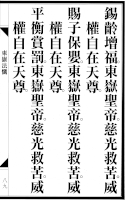 錫齡增福東嶽聖帝。慈光救苦。威
權自在天尊。
賜子保嬰東嶽聖帝。慈光救苦。威
權自在天尊。
平衡賞罰東嶽聖帝。慈光救苦。威
權自在天尊。
東嶽法懺
八九